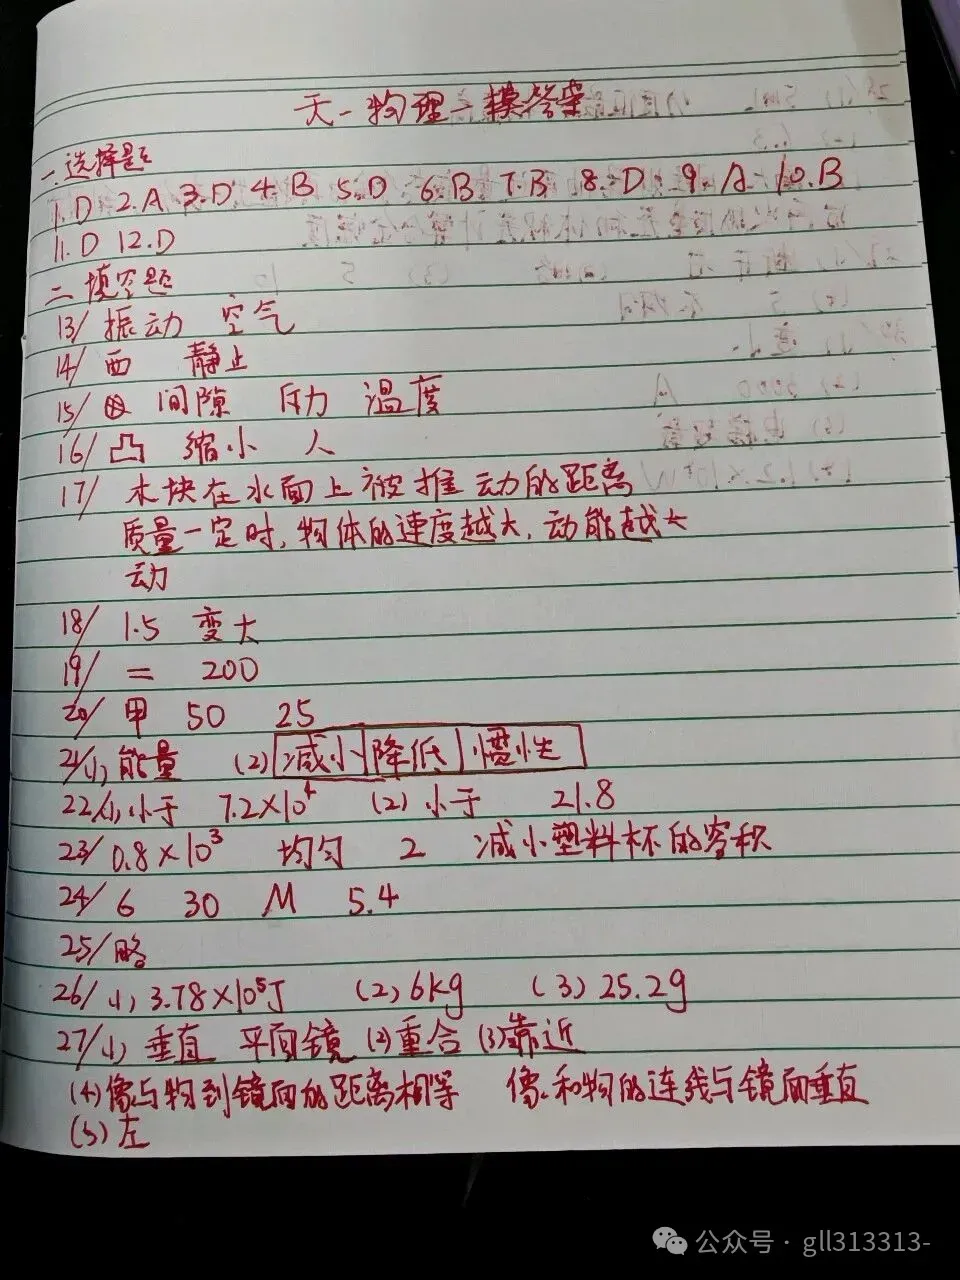 天一物理一模答案
一.选择题
1.D 2.A 3.D 4.B 5.D 6.B 7.B 8.D 9.A 10.B
11.D 12.D
二填空题
13/ 振动 空气
14/ 西 静止
15/ 间隙 压力 温度
16/ 凸 缩小 人
17/ 木块在水面上被推动的距离
质量一定时,物体的速度越大,动能越大
动
18/ 1.5 变大
19/ = 200
20/ 甲 50 25
21/(1)能量 (2)减小 降低 惯性
22/(1)小于 7.2×10⁴ (2)小于 21.8
23/ 0.8×10³ 均匀 2 减小塑料杯的容积
24/ 6 30 M 5.4
25/ 略
26/(1)3.78×10⁵J (2)6kg (3)25.2g
27/(1)垂直 平面镜 (2)重合 (3)靠近
(4)像与物到镜面的距离相等 像和物的连线与镜面垂直
(5)左
公众号·gll313313-